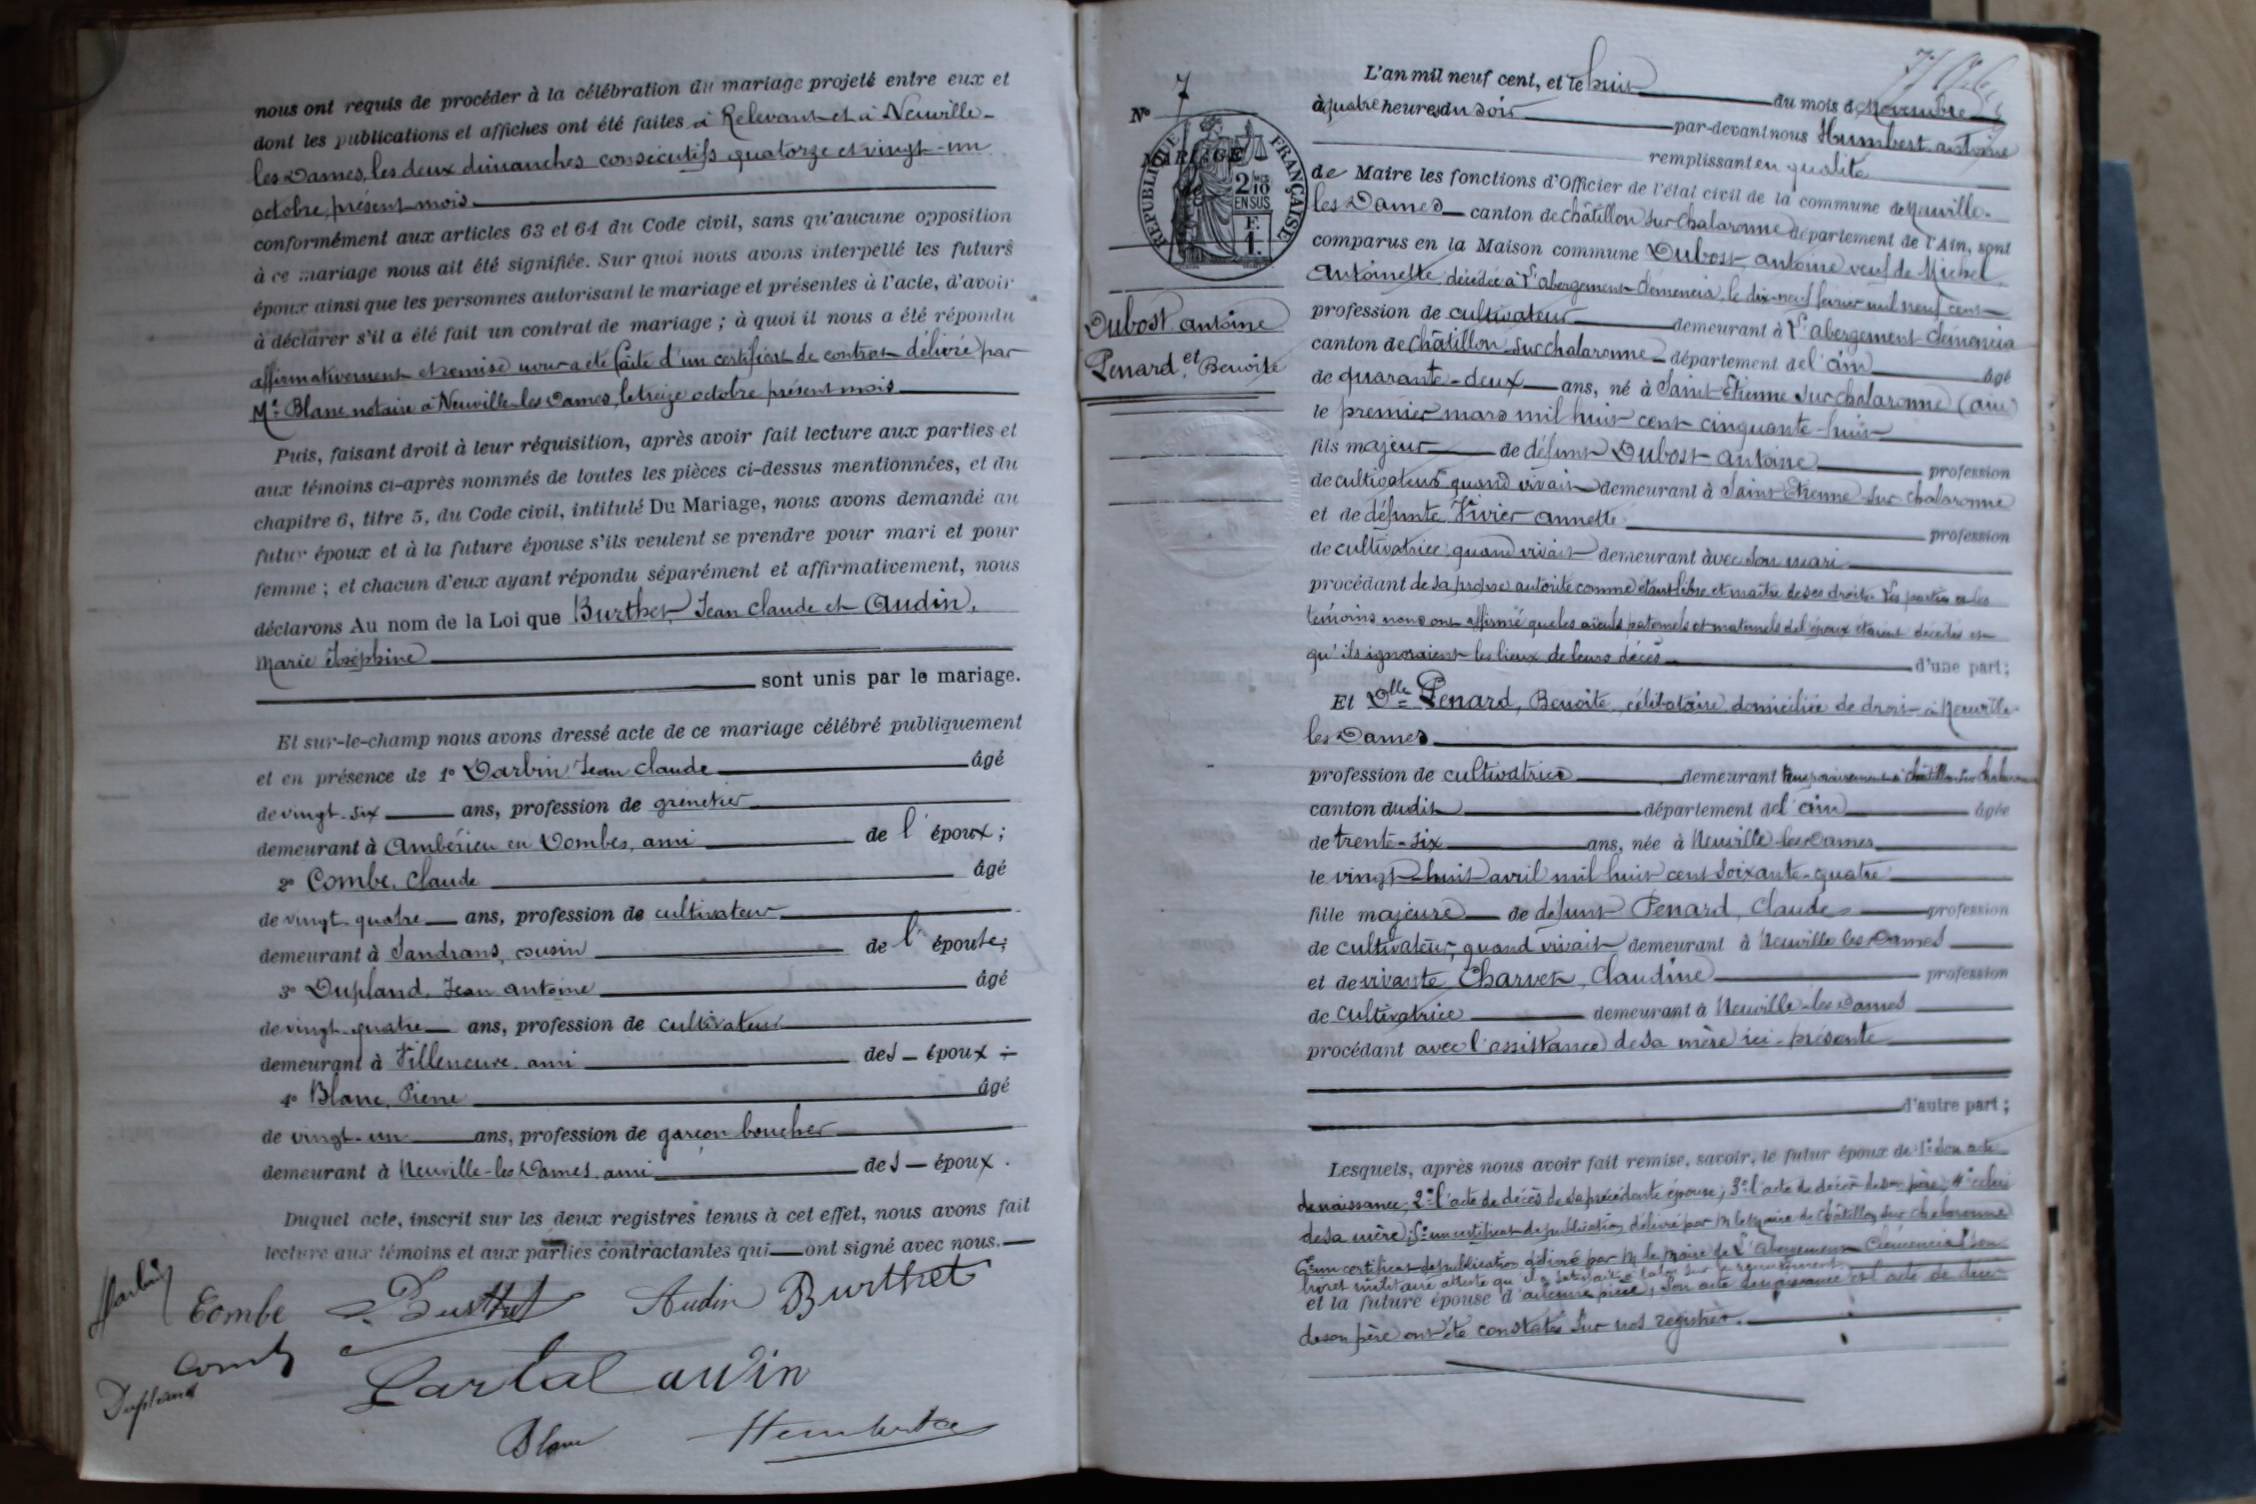 nous ont requis de procéder à la célébration du mariage projeté entre eux et
dont les publications et affiches ont été faites à Relevant et à Neuville-
les Dames, les deux dimanches consécutifs quatorze et vingt-un
octobre, présent mois
conformément aux articles 63 et 64 du Code civil, sans qu'aucune opposition
à ce mariage nous ait été signifiée. Sur quoi nous avons interpellé les futurs
époux ainsi que les personnes autorisant le mariage et présentes à l'acte, d'avoir
à déclarer s'il a été fait un contrat de mariage ; à quoi il nous a été répondu
affirmativement et remise nous a été faite d'un certificat de contrat délivré par
Me Blanc notaire à Neuville-les-Dames, le treize octobre présent mois
Puis, faisant droit à leur réquisition, après avoir fait lecture aux parties et
aux témoins ci-après nommés de toutes les pièces ci-dessus mentionnées, et du
chapitre 6, titre 5, du Code civil, intitulé Du Mariage, nous avons demandé au
futur époux et à la future épouse s'ils veulent se prendre pour mari et pour
femme ; et chacun d'eux ayant répondu séparément et affirmativement, nous
déclarons Au nom de la Loi que Burthet Jean Claude et Audin,
Marie Joséphine
sont unis par le mariage.
Et sur-le-champ nous avons dressé acte de ce mariage célébré publiquement
et en présence de 1° Darbin Jean Claude âgé
de vingt-six ans, profession de grènetier
demeurant à Ambérieu en Dombes, ami de l'époux ;
2° Combe, Claude âgé
de vingt-quatre ans, profession de cultivateur
demeurant à Sandrans, cousin de l'épouse ;
3° Dupland, Jean Antoine âgé
de vingt-quatre ans, profession de cultivateur
demeurant à Villeneuve, ami des époux
4° Blanc, Pierre âgé
de vingt-un ans, profession de garçon boucher
demeurant à Neuville-les-Dames, ami des époux.
Duquel acte, inscrit sur les deux registres tenus à cet effet, nous avons fait
lecture aux témoins et aux parties contractantes qui ont signé avec nous.
Darbin Combe Burthet Audin Burthet
Comb
Dupland
Cartal audin
Blanc
N° 7
MARIAGE
RÉPUBLIQUE FRANÇAISE
2/10
EN SUS
F.
1.
Dubost Antoine
et
Penard, Benoite
L'an mil neuf cent, et le huit du mois de Novembre
à quatre heures du soir par-devant nous Humbert Antoine
remplissant en qualité
de Maire les fonctions d'Officier de l'état civil de la commune de Neuville-
les Dames canton de Châtillon sur Chalaronne département de l'Ain, sont
comparus en la Maison commune Dubost Antoine veuf de Michel
Antoinette, décédée à L'abergement Clémencia, le dix-neuf février mil neuf cent
profession de cultivateur demeurant à L'abergement Clémencia
canton de Châtillon-sur Chalaronne département de l'ain âgé
de quarante-deux ans, né à Saint-Etienne sur chalaronne (ain)
le premier mars mil huit cent cinquante-huit
fils majeur de défunt Dubost Antoine profession
de cultivateur quand vivait demeurant à Saint Etienne-sur chalaronne
et de défunte Vivier Annette profession
de cultivatrice quand vivait demeurant avec son mari
procédant de sa propre autorité comme étant libre et maître de ses droits. Les parties et les
témoins nous ont affirmé que les aïeuls paternels et maternels de l'époux étaient décédés et
qu'ils ignoraient les lieux de leurs décès d'une part ;
Et Dlle Penard, Benoite, célibataire domiciliée de droit à Neuville-
les Dames
profession de cultivatrice demeurant temporairement à Châtillon sur chalaronne
canton dudit département de l'ain âgée
de trente-six ans, née à Neuville-les-Dames
le vingt-huit avril mil huit cent soixante-quatre
fille majeure de défunt Penard, Claude profession
de cultivateur, quand vivait demeurant à Neuville les Dames
et de vivante Charvet, Claudine profession
de cultivatrice demeurant à Neuville-les-Dames
procédant avec l'assistance de sa mère ici-présente
d'autre part ;
Lesquels, après nous avoir fait remise, savoir, le futur époux de 1° son acte
de naissance, 2° l'acte de décès de sa précédente épouse ; 3° l'acte de décès de son père ; 4° celui
de sa mère ; 5° un certificat de publication délivré par M le Maire de Châtillon sur chalaronne
6° un certificat de publication délivré par M le Maire de L'abergement Clémencia ; son
livret militaire atteste qu'il a satisfait à la loi sur le recrutement
et la future épouse d'aucune pièce, son acte de naissance et l'acte de décès
de son père ont été constatés sur nos registres.